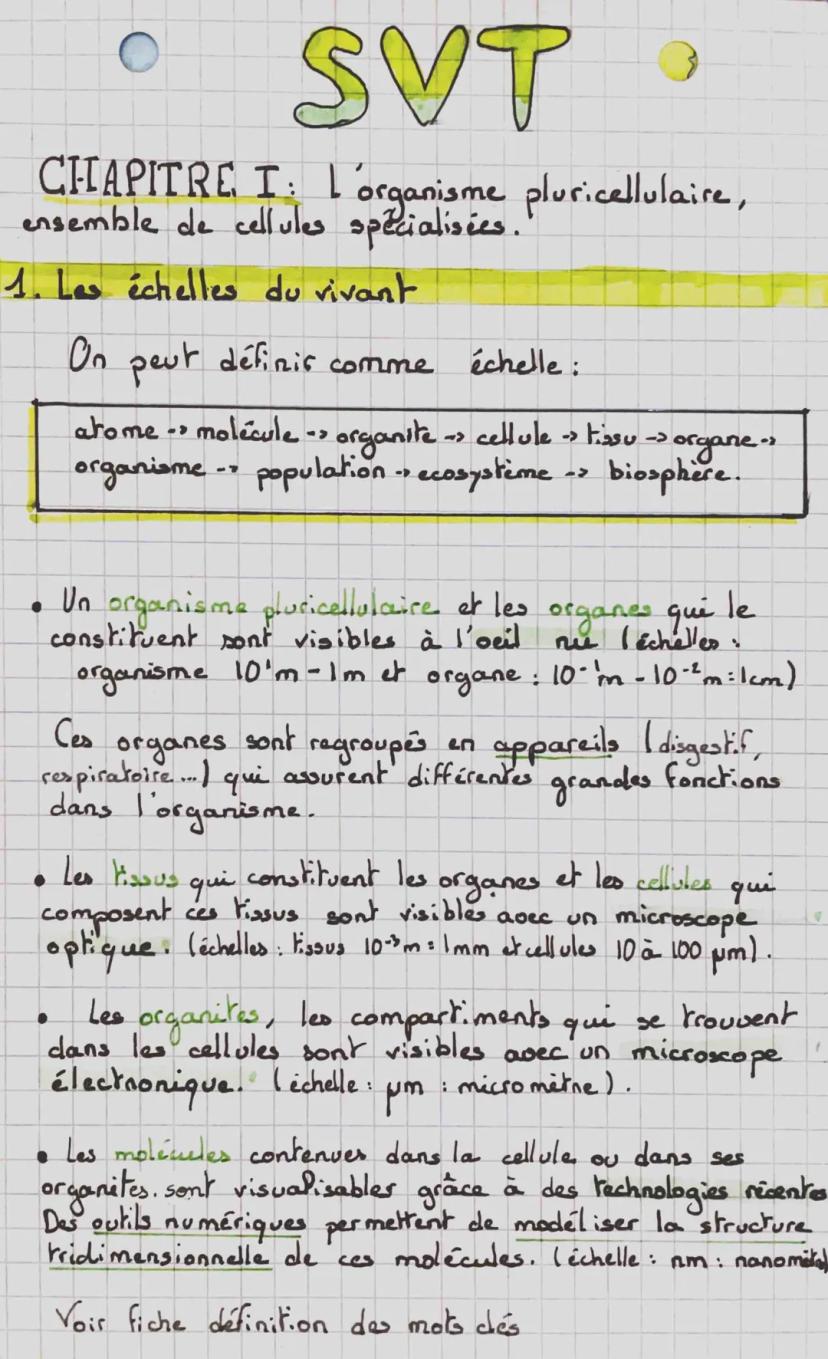 SVT
CHAPITRE I : L'organisme pluricellulaire,
ensemble de cellules spécialisées.
1. Les échelles du vivant
On peut définir comme échelle :
atome -> molécule -> organite -> cellule -> tissu -> organe ->
organisme -> population -> ecosystème -> biosphère.
• Un organisme pluricellulaire et les organes qui le
constituent sont visibles à l'oeil nu (échelles :
organisme 10¹m - 1m et organe : 10⁻¹m - 10⁻²m = 1cm)
Ces organes sont regroupés en appareils (disgestif,
respiratoire ...) qui assurent différentes grandes fonctions
dans l'organisme.
• Les tissus qui constituent les organes et les cellules qui
composent ces tissus sont visibles avec un microscope
optique. (échelles : tissus 10⁻³m = 1mm et cellules 10 à 100 µm).
• Les organites, les compartiments qui se trouvent
dans les cellules sont visibles avec un microscope
électronique. (échelle : µm : micromètre).
• Les molécules contenues dans la cellule ou dans ses
organites. sont visualisables grâce à des technologies récentes
Des outils numériques permettent de modéliser la structure
tridimensionnelle de ces molécules. (échelle : nm :
Voir fiche définition des mots clés